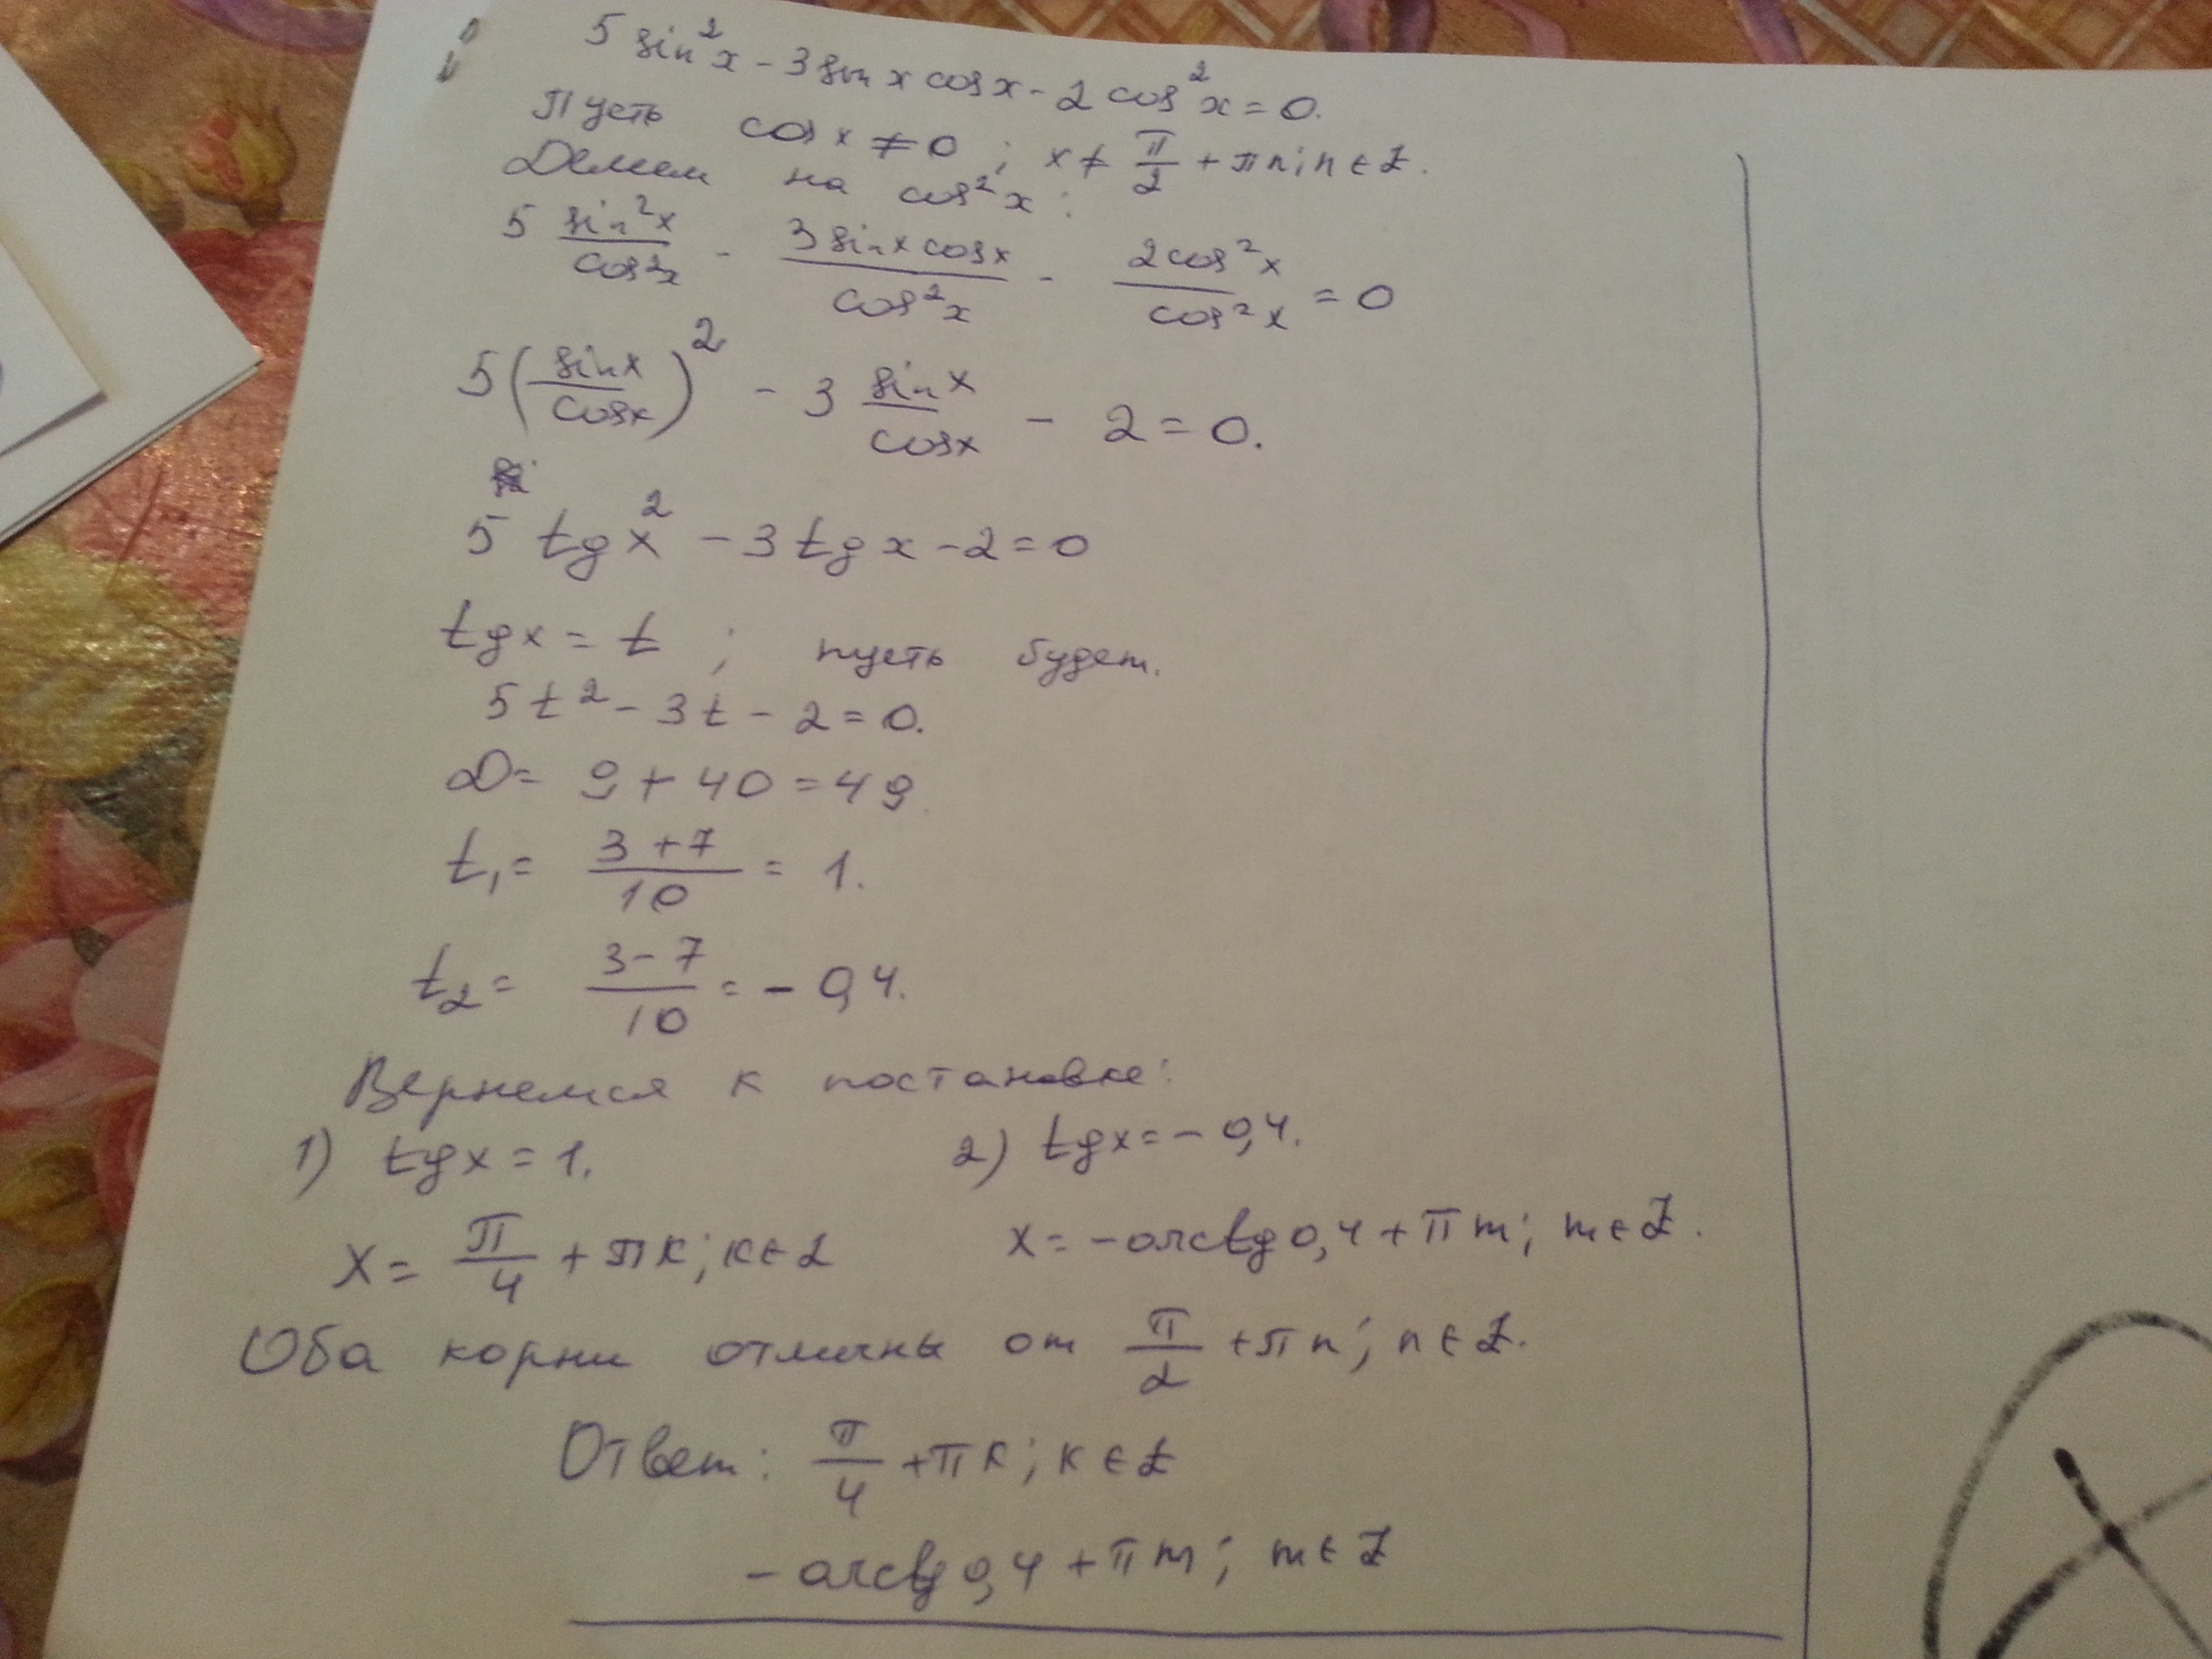 5 sin²x - 3 sin x cos x - 2 cos²x = 0.
Пусть cos x ≠ 0 ; x ≠ π/2 + πn; n ∈ Z.
Делим на cos²x :
5 sin²x/cos²x - 3 sin x cos x/cos²x - 2 cos²x/cos²x = 0
5 (sin x/cos x)² - 3 sin x/cos x - 2 = 0.
5 tg x² - 3 tg x - 2 = 0
tg x = t ; пусть будет.
5t² - 3t - 2 = 0.
D = 9 + 40 = 49
t₁ = (3 + 7)/10 = 1.
t₂ = (3 - 7)/10 = - 0,4.
Вернемся к постановке:
1) tg x = 1. 2) tg x = - 0,4.
x = π/4 + πk; k ∈ Z x = - arctg 0,4 + πm; m ∈ Z.
Оба корни отличны от π/2 + πn; n ∈ Z.
Ответ: π/4 + πk; k ∈ Z
- arctg 0,4 + πm; m ∈ Z